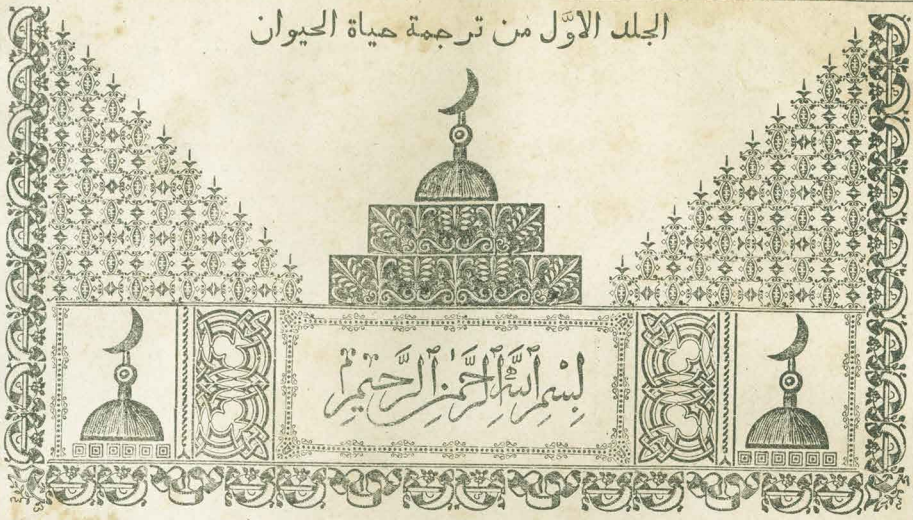 الجلد الاوَّل من ترجمة حياة الحيوان
بِسْمِ ٱللَّهِ ٱلرَّحْمٰنِ ٱلرَّحِيمِ